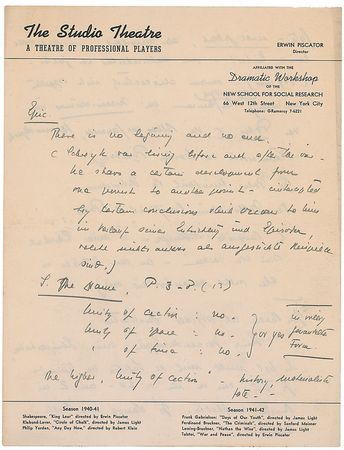 The Studio Theatre
A THEATRE OF PROFESSIONAL PLAYERS
ERWIN PISCATOR
Director
AFFILIATED WITH THE
Dramatic Workshop
OF THE
NEW SCHOOL FOR SOCIAL RESEARCH
66 West 12th Street New York City
Telephone: GRamercy 7-6221
Epic.
There is no beginning and no end.
( living before and after the
We share a certain development from
one point to another point - interrupted
by certain conclusions which occur to him
im und
nichts anders als
sind.)
The P. 3-8. (13)
Unity of action : no.
Unity of space : no.
" of time : no.
or yes
in very
Form
The higher, Unity of action - history, materialistic
fate
Season 1940-41
Shakespeare, "King Lear" directed by Erwin Piscator
Klabund-Laver, "Circle of Chalk", directed by James Light
Philip Yordan, "Any Day Now," directed by Robert Klein
Season 1941-42
Frank Gabrielson: "Days of Our Youth", directed by James Light
Ferdinand Bruckner, "The Criminals", directed by Sanford Meisner
Lessing-Bruckner, "Nathan the Wise", directed by James Light
Tolstoi, "War and Peace", directed by Erwin Piscator